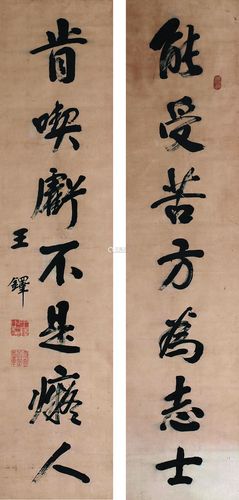 能受苦方為志士
肯喫虧不是癡人
王鐸